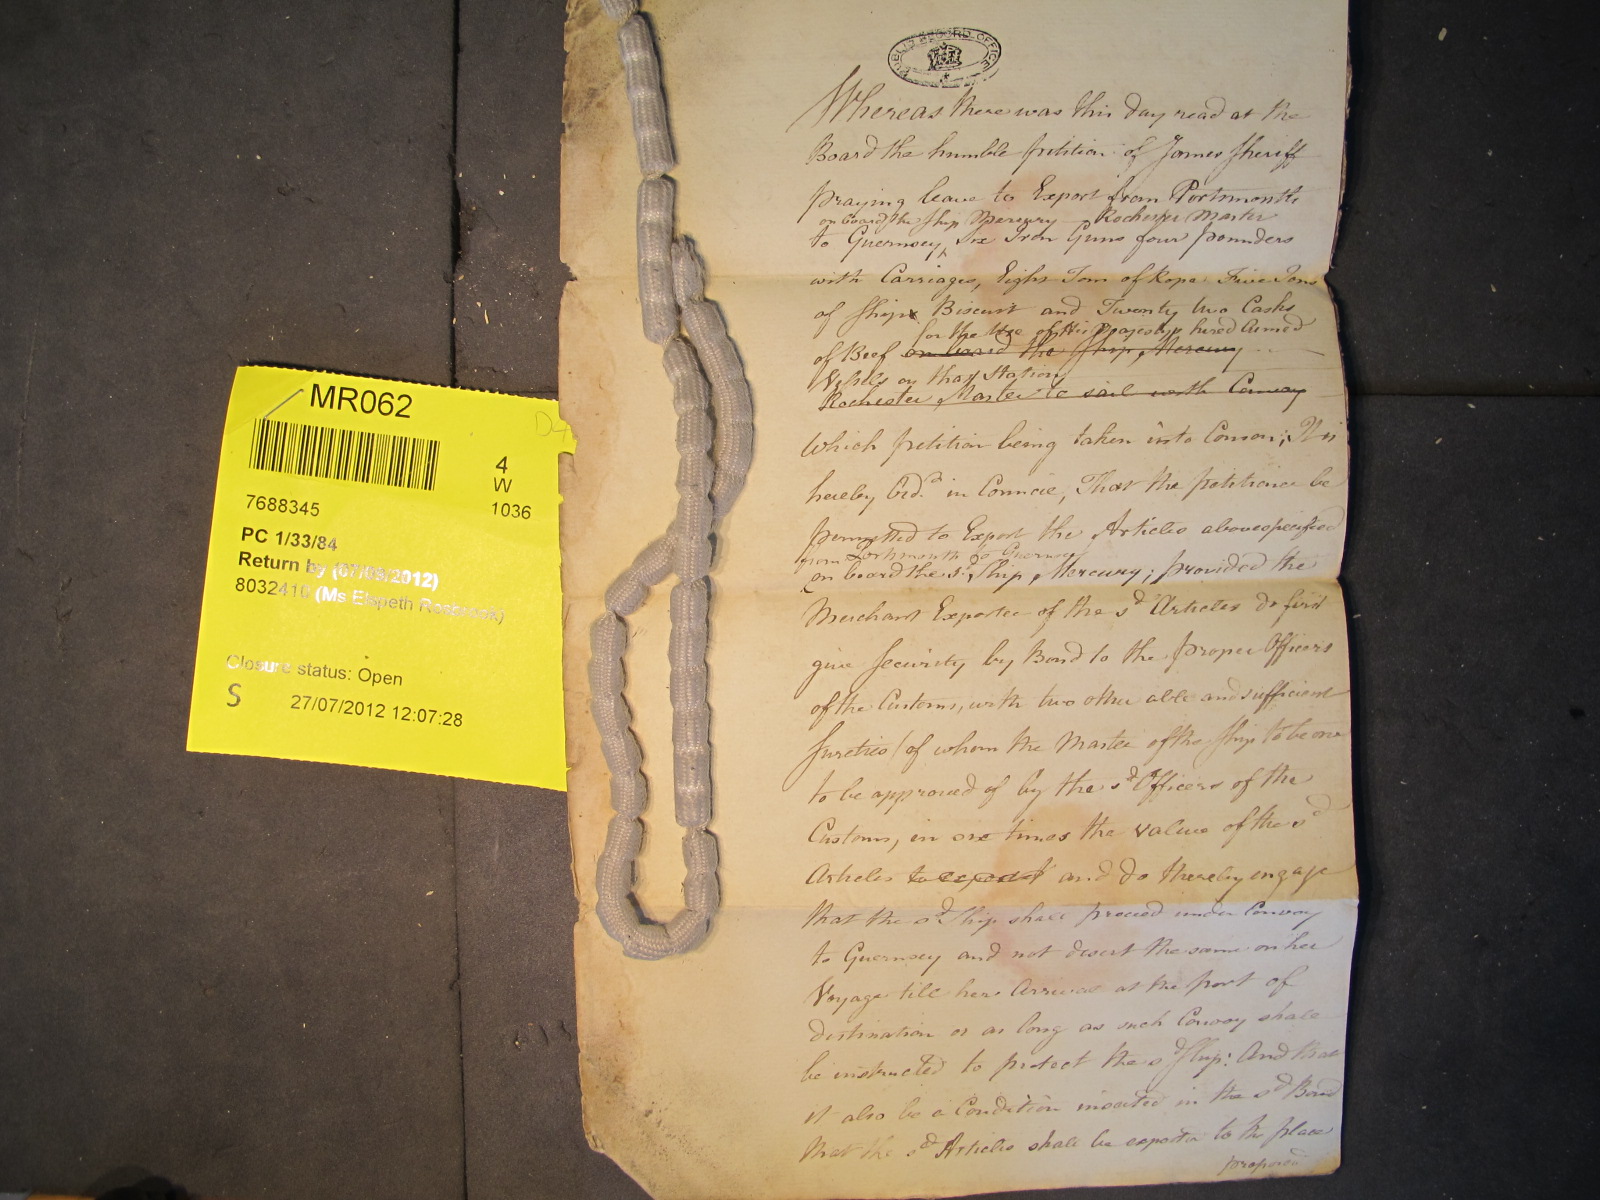 MR062
D4
4
W
1036
7688345
PC 1/33/84
Return by (07/09/2012)
8032410 (Ms Elspeth Rosbrook)
Closure status: Open
S 27/07/2012 12:07:28
PUBLIC RECORD OFFICE
Whereas there was this day read at the
Board the humble petition of James Sheriff
praying leave to Export from Portsmouth
on board the Ship Mercury Rochester Master
to Guernsey, Six Iron Guns four pounders
with Carriages, Eight Tons of Rope Five Tons
of Ships Biscuit and Twenty two Casks
for the Use of His Majestys hired Armed
of Beef on board the Ship Mercury
Vessels on that Station
Rochester Master to sail with Convoy
Which petition being taken into Conson; It is
hereby Ord.d in Council, That the petitioner be
permitted to Export the Articles abovespecified
from Portsmouth to Guernsey
on board the sd. Ship Mercury; provided the
Merchant Exporter of the sd Articles do first
give Security by Bond to the proper Officers
of the Customs, with two other able and sufficient
Sureties (of whom the Master of the Ship to be one
to be approved of by the sd Officers of the
Customs, in six times the value of the sd
Articles to export and do thereby engage
that the sd Ship shall proceed under Convoy
to Guernsey and not desert the same on her
Voyage till her Arrival at the port of
destination or as long as such Convoy shall
be instructed to protect the sd Ship: And that
it also be a Condition inserted in the sd Bond
that the sd Articles shall be exported to the place
proposed